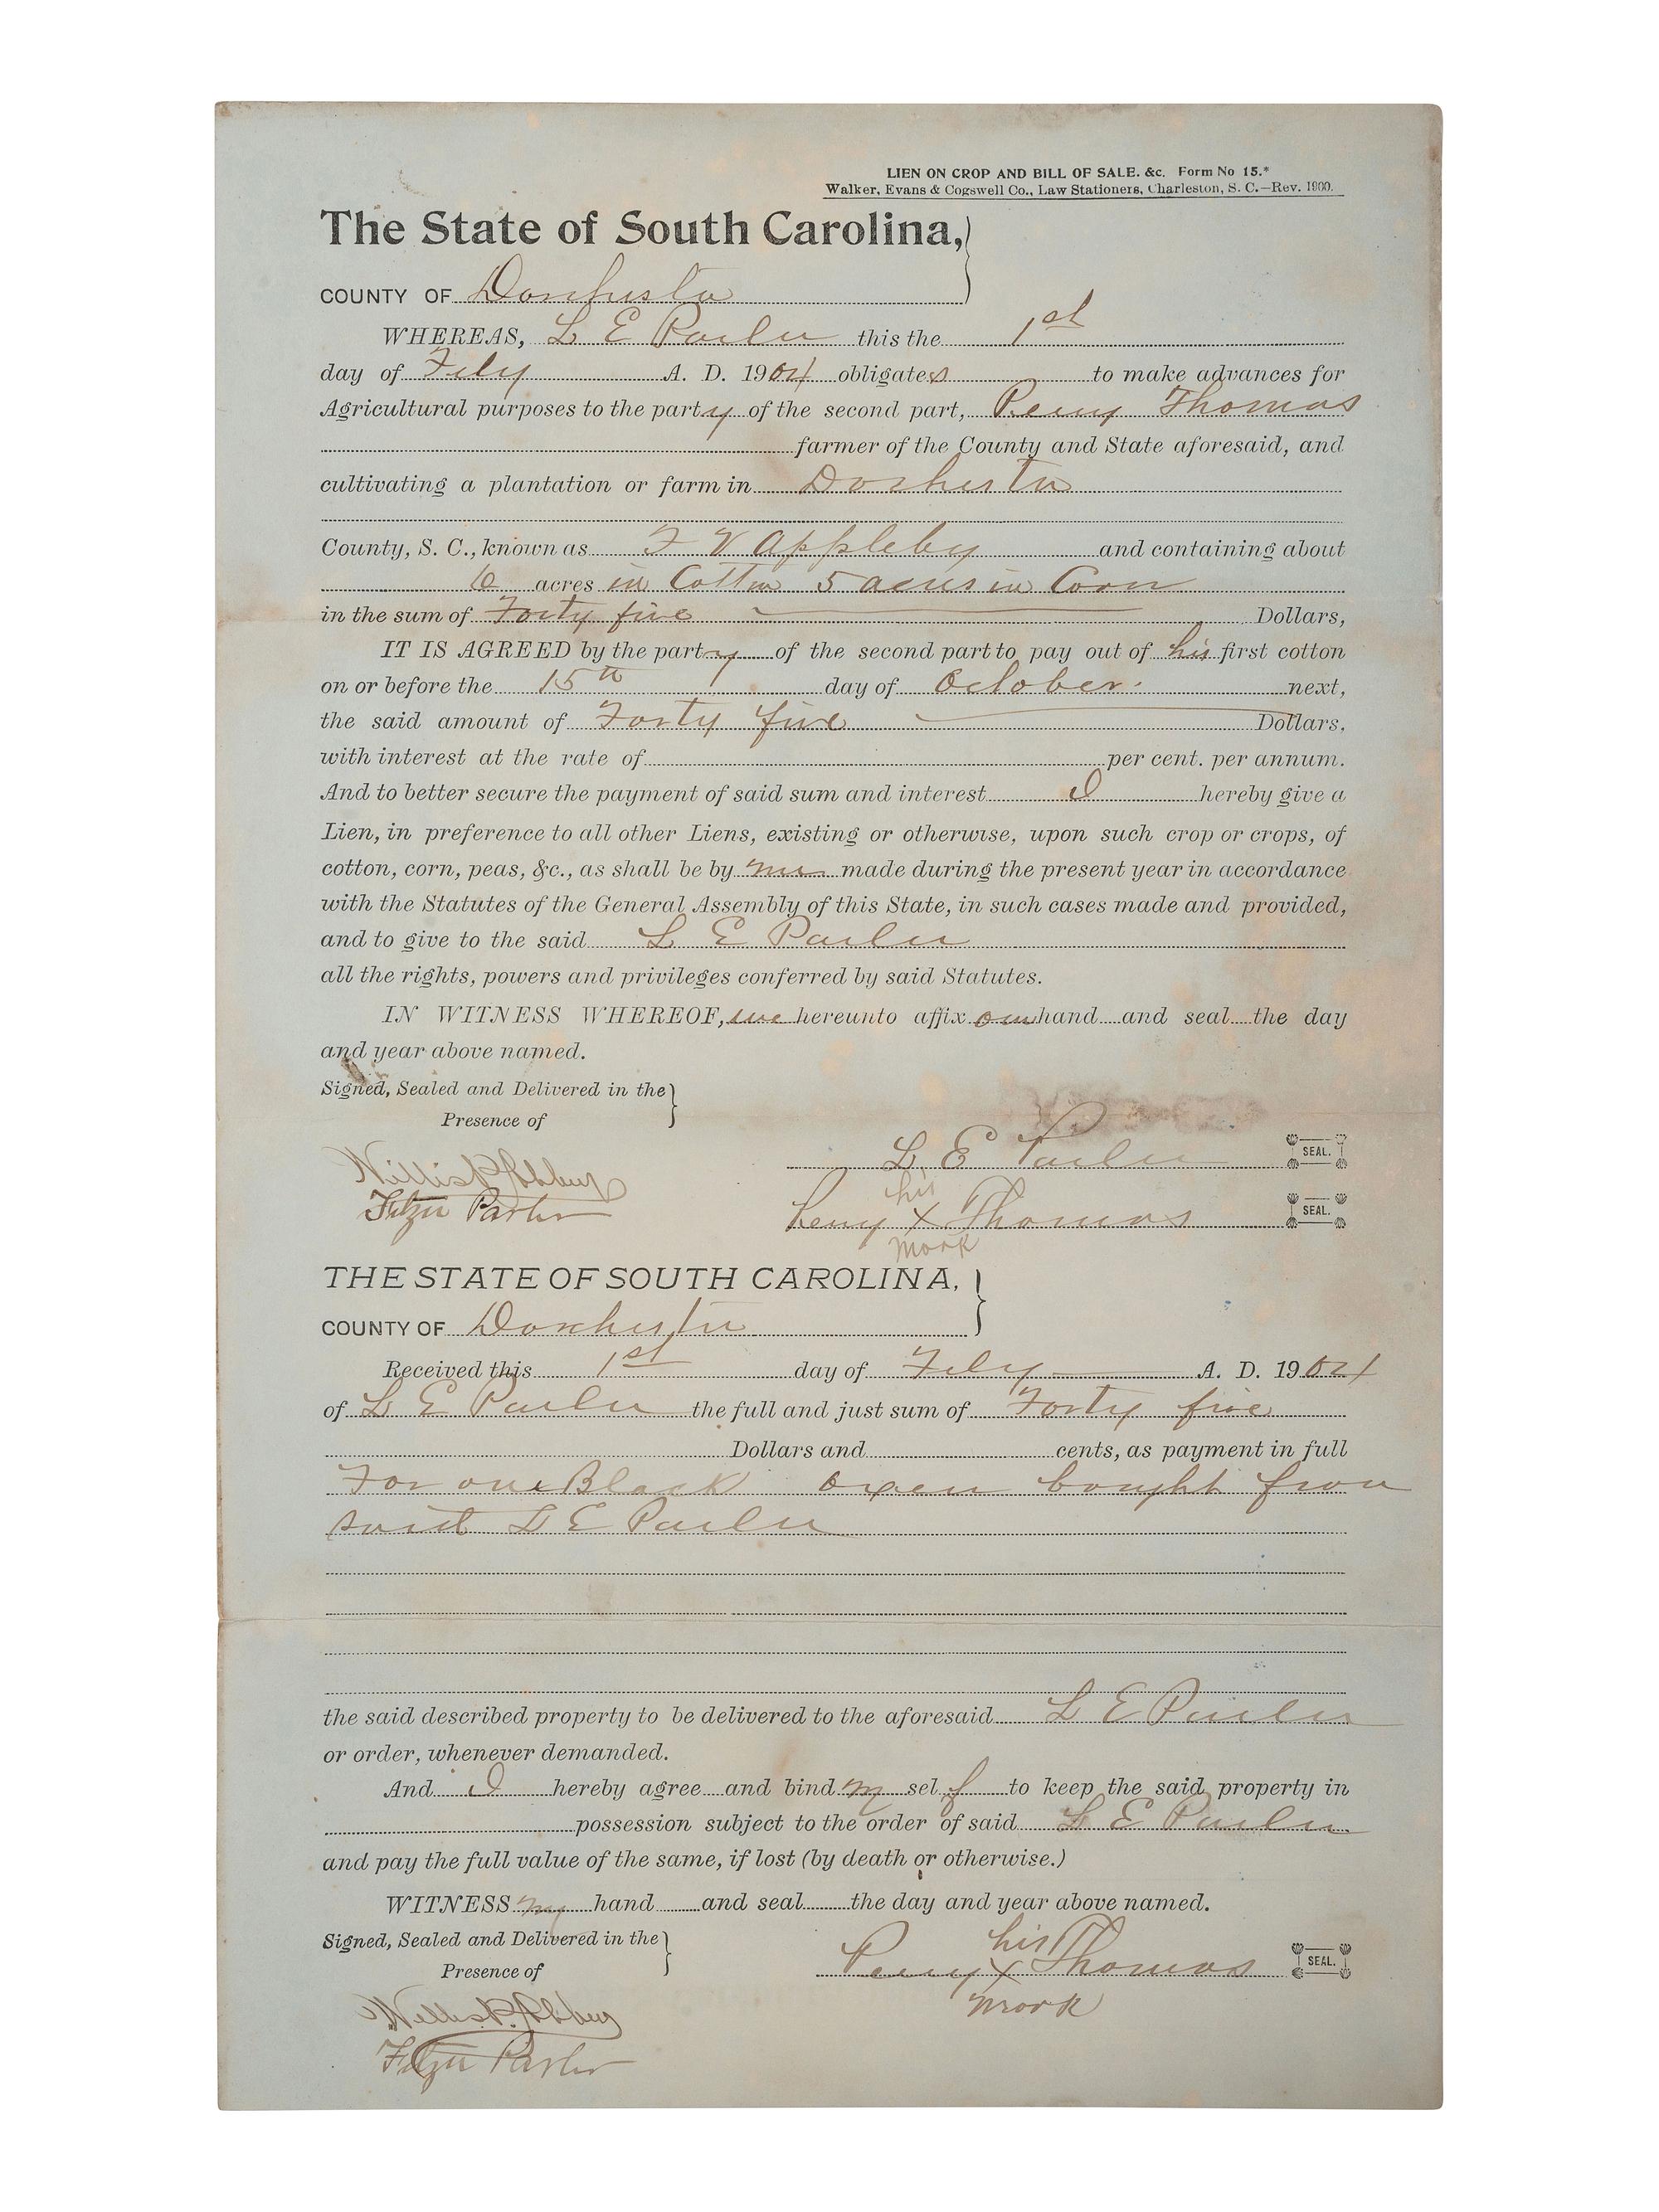 LIEN ON CROP AND BILL OF SALE. &c. Form No 15.*
Walker, Evans & Cogswell Co., Law Stationers, Charleston, S. C.—Rev. 1900.
The State of South Carolina,
COUNTY OF Dorchester
WHEREAS, L E Parler this the 1st
day of Feby A. D. 1904 obligates to make advances for
Agricultural purposes to the party of the second part, Perry Thomas
farmer of the County and State aforesaid, and
cultivating a plantation or farm in Dorchester
County, S. C., known as Appleby and containing about
acres in Cotton 5 acres in Corn
in the sum of Forty five Dollars,
IT IS AGREED by the party of the second part to pay out of his first cotton
on or before the 15th day of October next,
the said amount of Forty five Dollars,
with interest at the rate of per cent. per annum.
And to better secure the payment of said sum and interest I hereby give a
Lien, in preference to all other Liens, existing or otherwise, upon such crop or crops, of
cotton, corn, peas, &c., as shall be by me made during the present year in accordance
with the Statutes of the General Assembly of this State, in such cases made and provided,
and to give to the said L E Parler
all the rights, powers and privileges conferred by said Statutes.
IN WITNESS WHEREOF, we hereunto affix our hand and seal the day
and year above named.
Signed, Sealed and Delivered in the
Presence of
L E Parler SEAL.
his
Parler Perry X Thomas SEAL.
mark
THE STATE OF SOUTH CAROLINA,
COUNTY OF Dorchester
Received this 1st day of Feby A. D. 1904
of L E Parler the full and just sum of Forty five
Dollars and cents, as payment in full
For one Black oxen bought from
said L E Parler
the said described property to be delivered to the aforesaid L E Parler
or order, whenever demanded.
And I hereby agree and bind my self to keep the said property in
possession subject to the order of said L E Parler
and pay the full value of the same, if lost (by death or otherwise.)
WITNESS my hand and seal the day and year above named.
Signed, Sealed and Delivered in the
his
Presence of Perry X Thomas SEAL.
mark
Parler